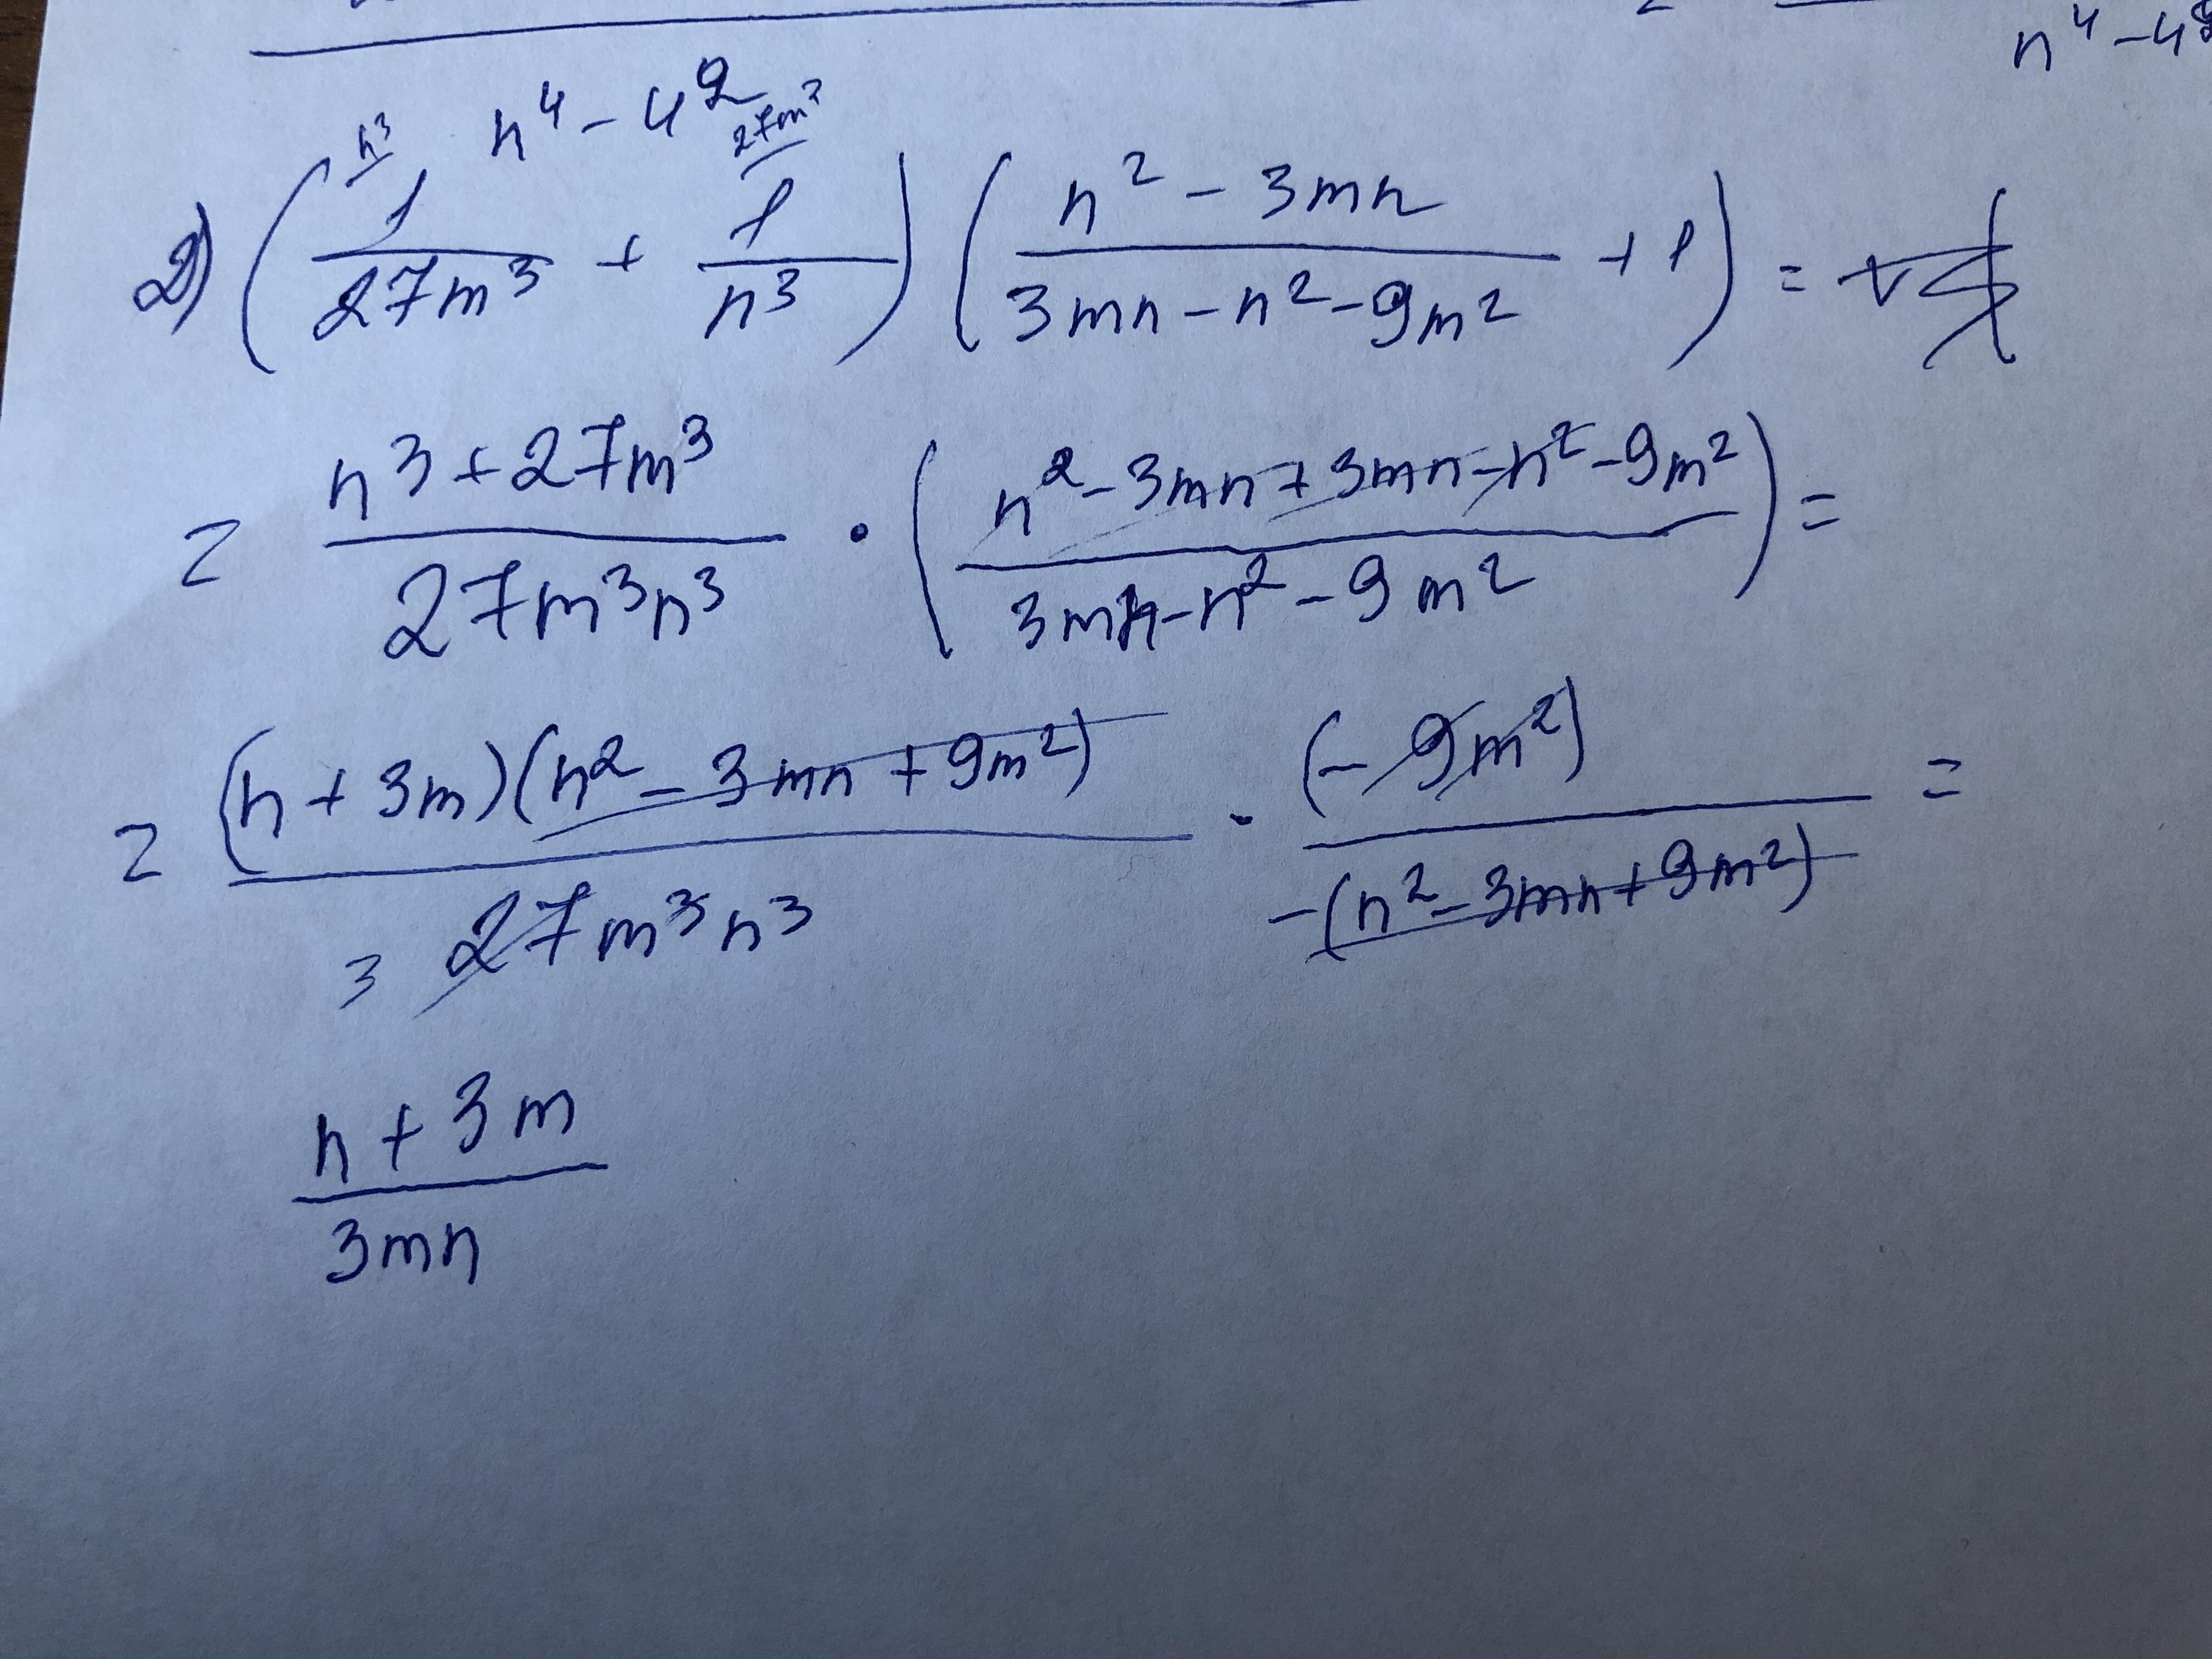 n⁴ - 4⁹
n⁴ - 4⁹
n³ 27m³
2) (1/27m³ + 1/n³) ((n² - 3mn)/(3mn - n² - 9m²) + 1) =
= (n³ + 27m³)/(27m³n³) · ((n² - 3mn + 3mn - n² - 9m²)/(3mn - n² - 9m²)) =
= ((n + 3m)(n² - 3mn + 9m²))/(27m³n³) · (-9m²)/(-(n² - 3mn + 9m²)) =
3
(n + 3m)/(3mn)